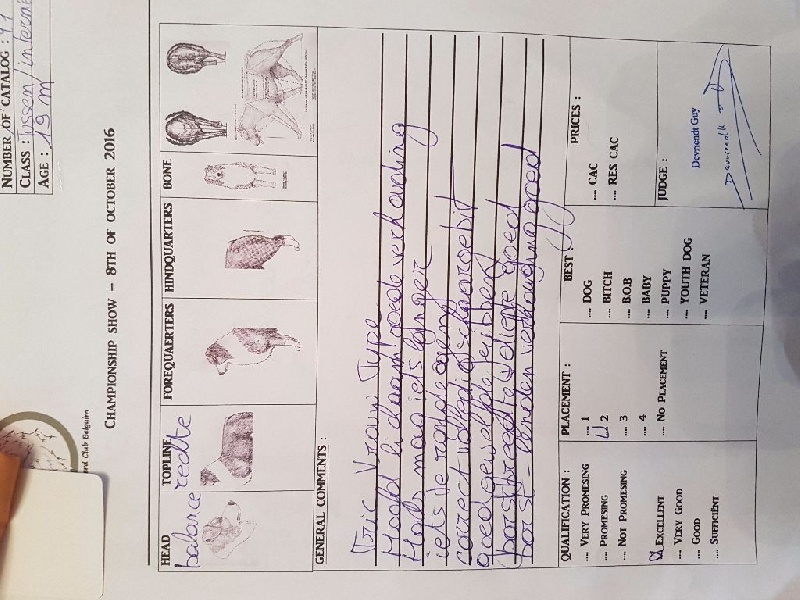 NUMBER OF CATALOG : 91
CLASS : tussen / interme
AGE : 19 m
rd Club Belgium
CHAMPIONSHIP SHOW – 8TH OF OCTOBER 2016
HEAD TOPLINE FOREQUAERTERS HINDQUARTERS BONE
balance rechte
GENERAL COMMENTS :
Tric Vrouw Type
Hoofd lichaam goede verhouding
Hals mag iets langer
iets te ronde ogen
correct volledig schaargebit
goed gewelfde ribben
borstbreedte diepte goed
borst - verhouding goed
QUALIFICATION :
... VERY PROMESING
... PROMESING
... NOT PROMESING
EXCELLENT
... VERY GOOD
... GOOD
... SUFFICIENT
PLACEMENT :
... 1
2
... 3
... 4
... NO PLACEMENT
BEST :
... DOG
... BITCH
... B.O.B
... BABY
... PUPPY
... YOUTH DOG
... VETERAN
PRICES :
... CAC
... RES CAC
JUDGE :
Devriendt Guy